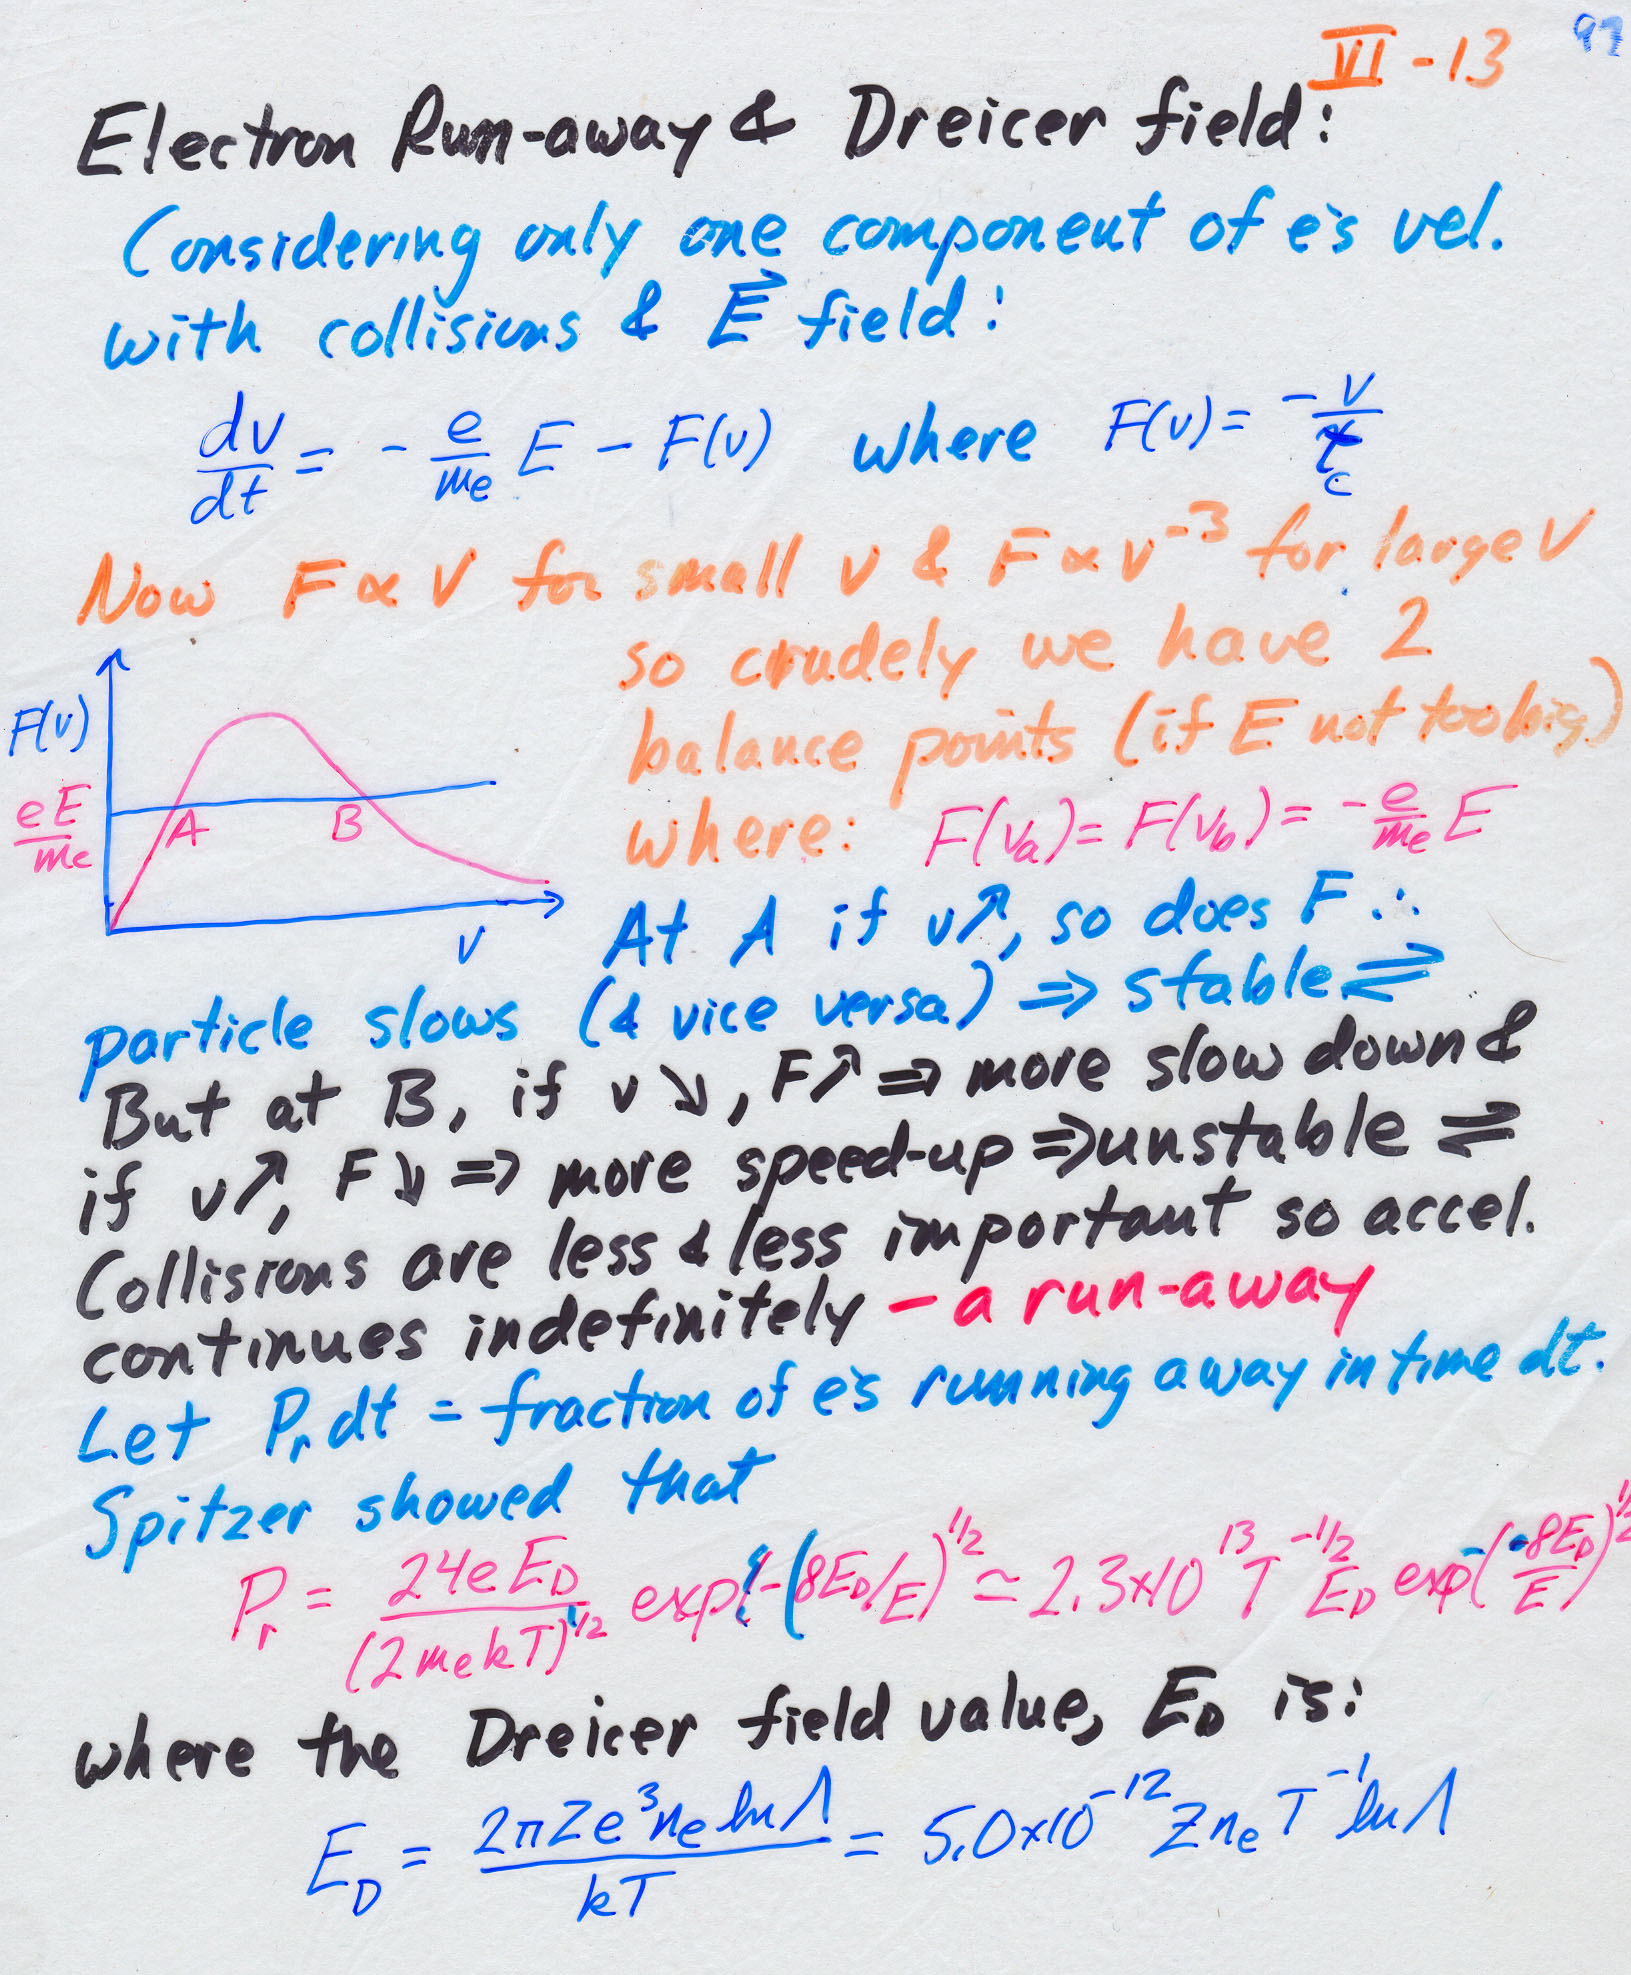 VI-13 97
Electron Run-away & Dreicer field:
Considering only one component of e's vel.
with collisions & E⃗ field:
dv/dt = - e/mₑ E - F(v) where F(v) = -v/τ_c
Now F ∝ V for small v & F ∝ v⁻³ for large v
so crudely we have 2
balance points (if E not too big)
where: F(vₐ) = F(v_b) = - e/mₑ E
F(v)
eE/mₑ
A B
v
At A if v↗, so does F ∴
particle slows (& vice versa) ⇒ stable ⇌
But at B, if v↘, F↗ ⇒ more slow down &
if v↗, F↘ ⇒ more speed-up ⇒ unstable ⇌
Collisions are less & less important so accel.
continues indefinitely - a run-away
Let Pᵣdt = fraction of e's running away in time dt.
Spitzer showed that
Pᵣ = 24eE_D/(2mₑkT)^1/2 exp{-(8E_D/E)^1/2 ≃ 2.3×10¹³ T^-1/2 E_D exp-(-8E_D/E)^1/2
where the Dreicer field value, E_D is:
E_D = 2πZe³nₑ ln Λ/kT = 5.0×10⁻¹² Z nₑ T⁻¹ ln Λ